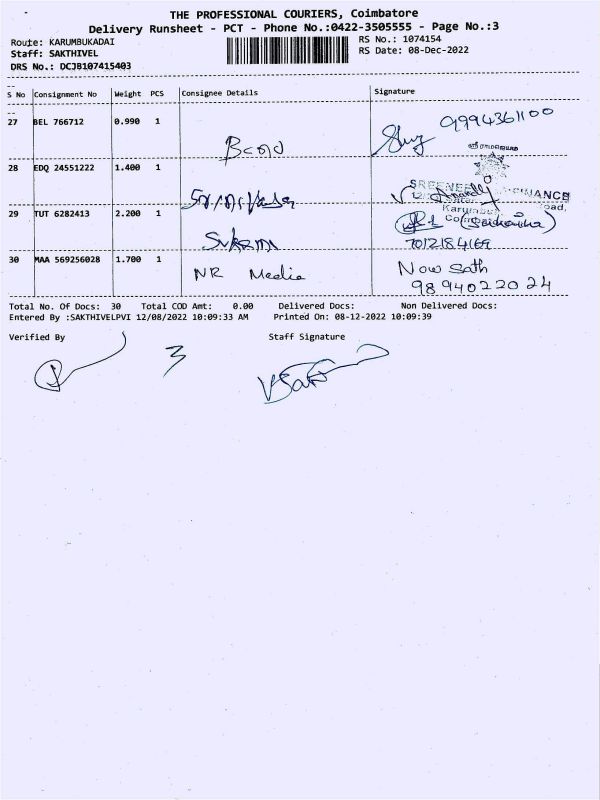 THE PROFESSIONAL COURIERS, Coimbatore
Delivery Runsheet - PCT - Phone No.:0422-3505555 - Page No.:3
Route: KARUMBUKADAI
RS No.: 1074154
Staff: SAKTHIVEL
RS Date: 08-Dec-2022
DRS No.: DCJB107415403
S No Consignment No Weight PCS Consignee Details Signature
27 BEL 766712 0.990 1
9994361100
28 EDQ 24551222 1.400 1
29 TUT 6282413 2.200 1
7012184169
30 MAA 569256028 1.700 1 NR Media Now Sath
98 94022024
Total No. Of Docs: 30 Total COD Amt: 0.00 Delivered Docs: Non Delivered Docs:
Entered By :SAKTHIVELPVI 12/08/2022 10:09:33 AM Printed On: 08-12-2022 10:09:39
Verified By Staff Signature
3